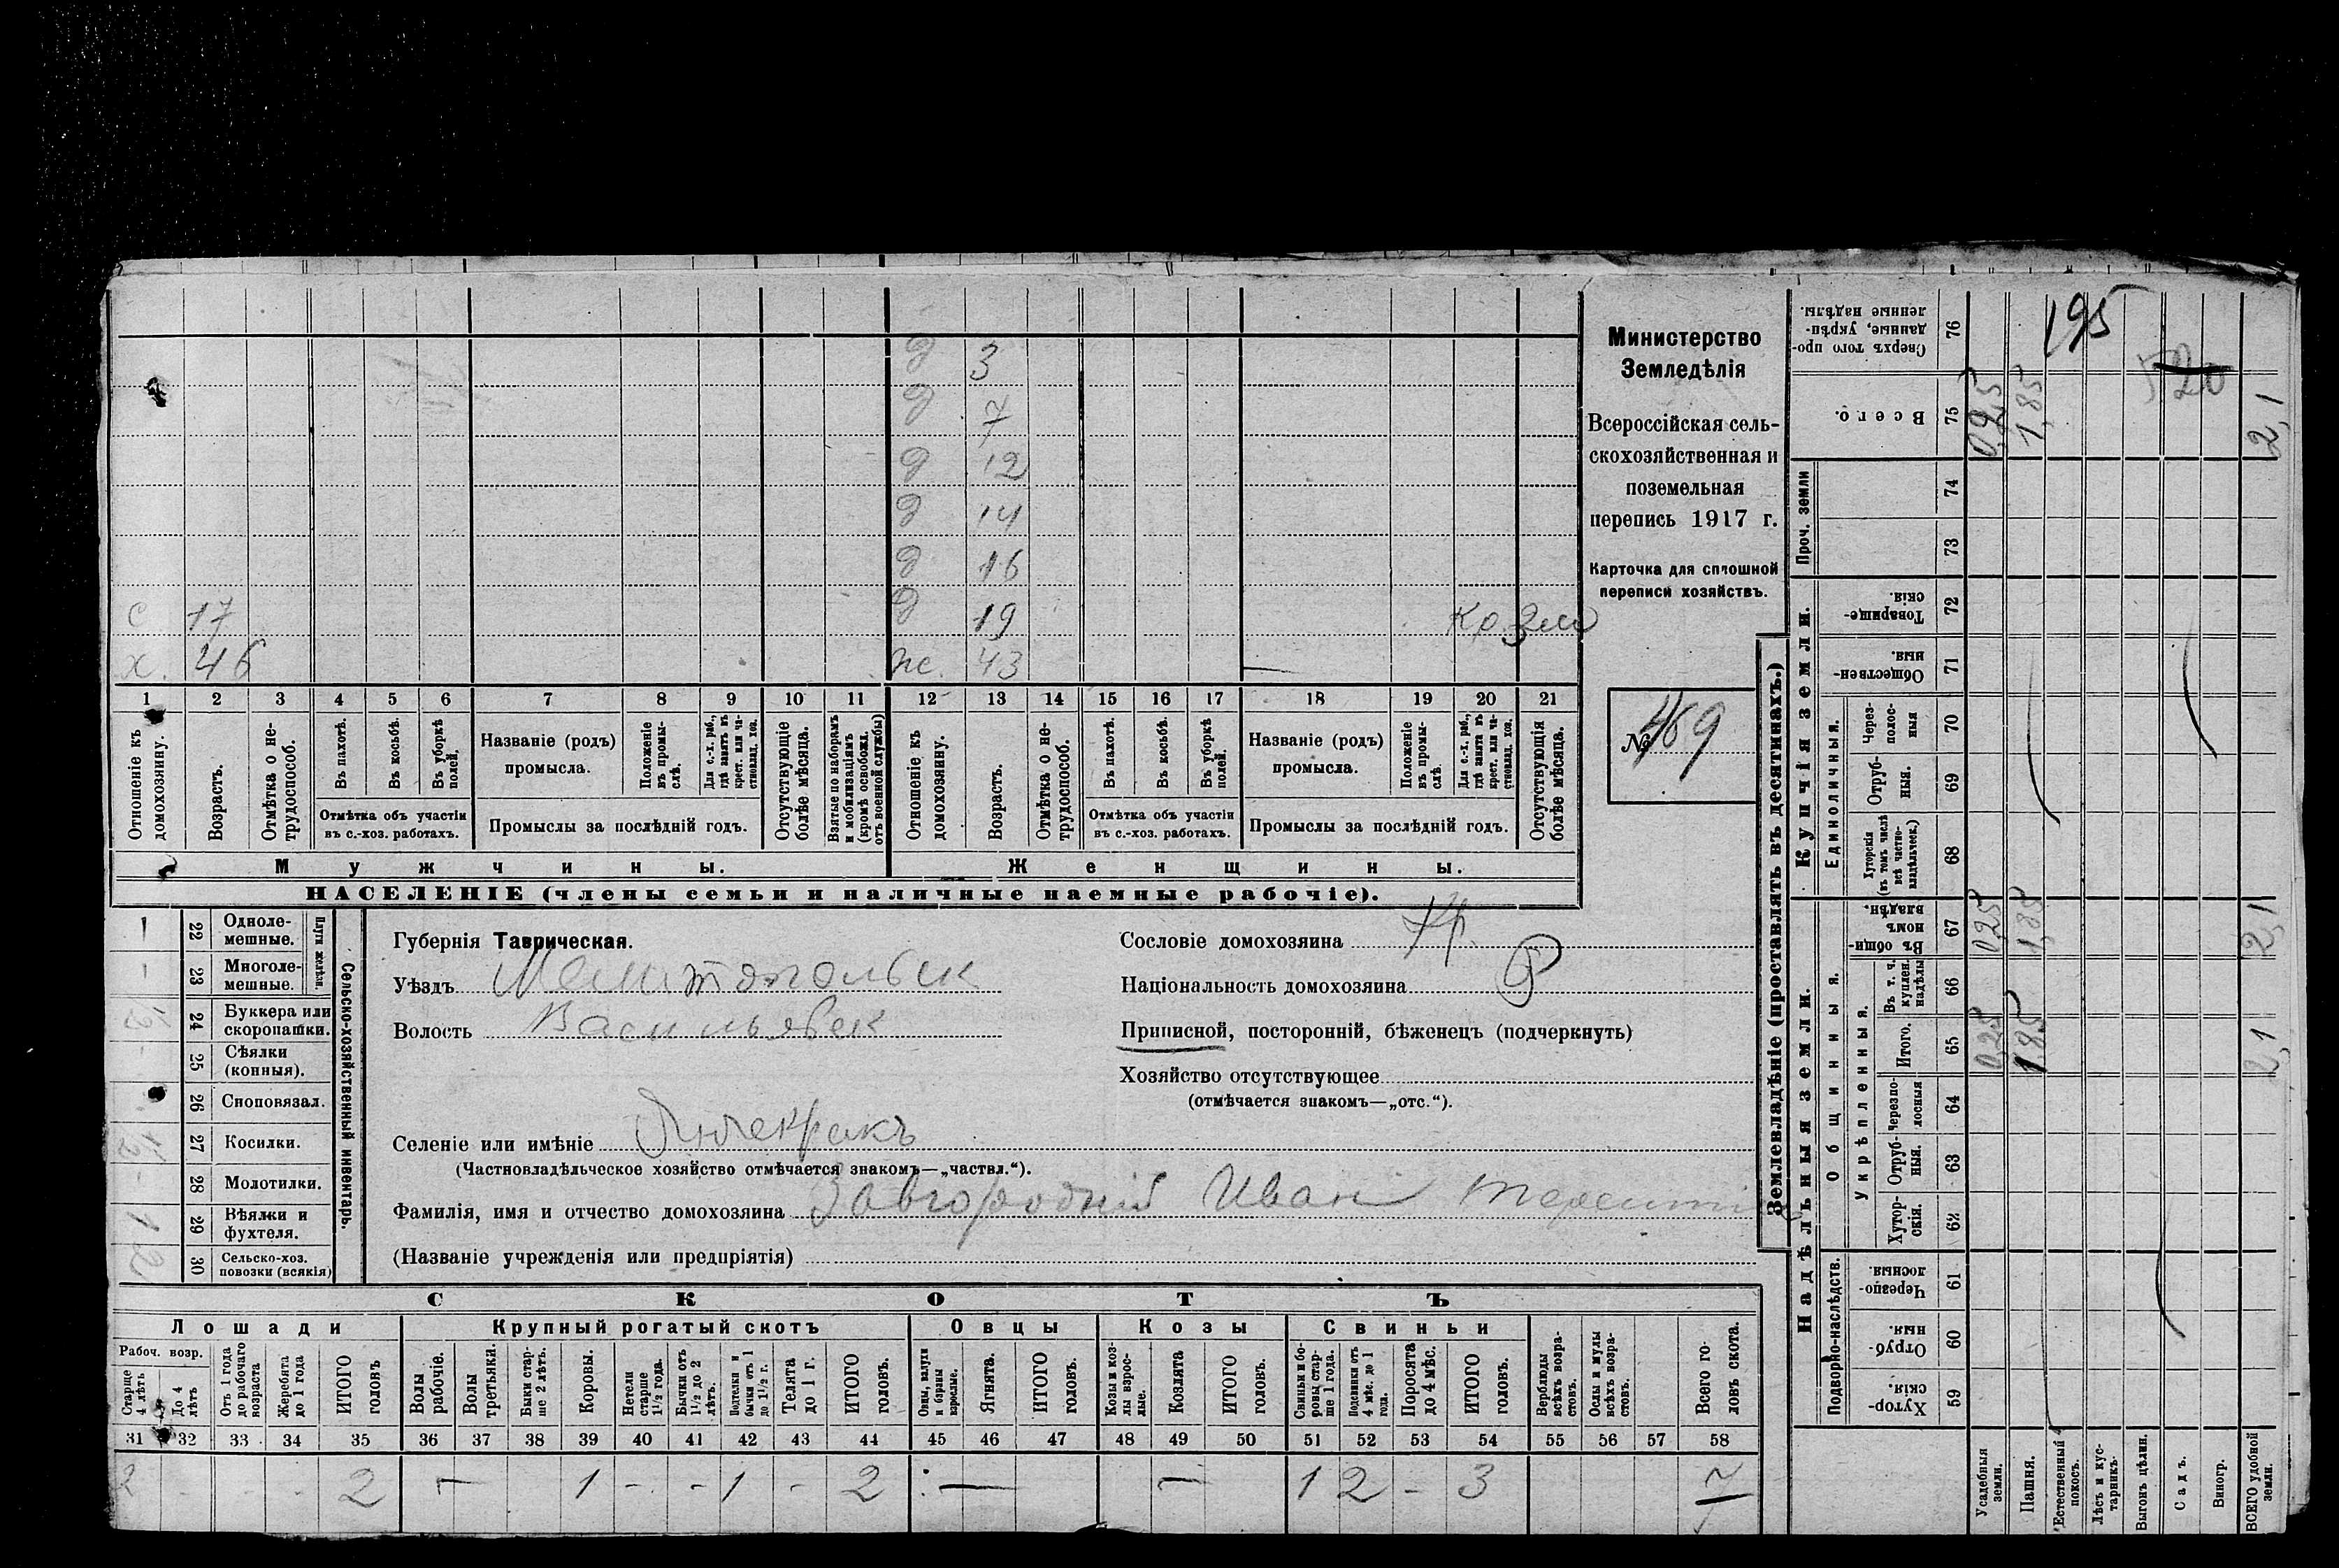 д 3
д 7
д 12
д 14
д 16
с 17 д 19
х. 46 ж. 43
1 2 3 4 5 6 7 8 9 10 11 12 13 14 15 16 17 18 19 20 21
Отношеніе къ домохозяину.
Возрастъ.
Отмѣтка о нетрудоспособ.
Въ пахотѣ.
Въ косьбѣ.
Въ уборкѣ полей.
Отмѣтка объ участіи
въ с.-хоз. работахъ.
Названіе (родъ)
промысла.
Положеніе въ промыслѣ.
Для с.-х. раб., гдѣ занятъ въ крест. или частновлад. хоз.
Промыслы за послѣдній годъ.
Отсутствующіе болѣе мѣсяца.
Взятые по наборамъ и мобилизаціямъ (кромѣ освобожд. отъ военной службы)
Отношеніе къ домохозяину.
Возрастъ.
Отмѣтка о нетрудоспособ.
Въ пахотѣ.
Въ косьбѣ.
Въ уборкѣ полей.
Отмѣтка объ участіи
въ с.-хоз. работахъ.
Названіе (родъ)
промысла.
Положеніе въ промыслѣ.
Для с.-х. раб., гдѣ занята въ крест. или частновлад. хоз.
Промыслы за послѣдній годъ.
Отсутствующія болѣе мѣсяца.
Мужчины. Женщины.
НАСЕЛЕНІЕ (члены семьи и наличные наемные рабочіе).
Министерство
Земледѣлія
Всероссійская сель-
скохозяйственная и
поземельная
перепись 1917 г.
Карточка для сплошной
переписи хозяйствъ.
№ 469
Сельско-хозяйственный инвентарь.
Плуги желѣзн.
1 22 Одноле-
мешные.
- 23 Многоле-
мешные.
24 Буккера или
скоропашки.
- 25 Сѣялки
(конныя).
26 Сноповязал.
27 Косилки.
- 28 Молотилки.
1 29 Вѣялки и
фухтеля.
2 30 Сельско-хоз.
повозки (всякія)
Губернія Таврическая.
Уѣздъ Мелитопольск
Волость Васильевск
Селеніе или имѣніе
(Частновладѣльческое хозяйство отмѣчается знакомъ—„частвл.“).
Фамилія, имя и отчество домохозяина Завгородній Иван Терентій
(Названіе учрежденія или предпріятія)
Сословіе домохозяина Кр.
Національность домохозяина Р
Приписной, посторонній, бѣженецъ (подчеркнуть)
Хозяйство отсутствующее
(отмѣчается знакомъ—„отс.“).
СКОТЪ
Лошади Крупный рогатый скотъ Овцы Козы Свиньи
Рабоч. возр.
Старше 4 лѣтъ
До 4 лѣтъ
Отъ 1 года до рабочаго возраста
Жеребята до 1 года
ИТОГО головъ
Волы рабочіе.
Волы третьяки.
Быки старше 2 лѣтъ.
Коровы.
Нетели старше 1½ года.
Бычки отъ 1½ до 2 лѣтъ.
Подтелки и бычки отъ 1 до 1½ г.
Телята до 1 г.
ИТОГО головъ.
Овцы, валухи и бараны взрослые.
Ягнята.
ИТОГО головъ.
Козы и козлы взрослые.
Козлята
ИТОГО головъ.
Свиньи и боровы старше 1 года.
Подсвинки отъ 4 мѣс. до 1 года.
Поросята до 4 мѣс.
ИТОГО головъ.
Верблюды всѣхъ возрастовъ.
Ослы и мулы всѣхъ возрастовъ.
Всего головъ скота.
31 32 33 34 35 36 37 38 39 40 41 42 43 44 45 46 47 48 49 50 51 52 53 54 55 56 57 58
2 - - - 2 — 1 - - 1 - 2 — — 1 2 - 3 7
Землевладѣніе (проставлять въ десятинахъ.)
Купчія земли.
Надѣльныя земли.
Проч. земли
Единоличныя.
Общинныя.
Укрѣпленныя.
Подворно-наслѣдств.
Сверхъ того проданные, укрѣпленные надѣлы. 76 195 520
Всего. 75 0,25 1,85 2,1
74
73
Товарищескія. 72
Общественныя. 71
Черезполосныя 70
Отрубныя. 69
Хуторскія (въ томъ числѣ всѣ частновладѣльческ.) 68
Въ общинномъ владѣн. 67 0,25 1,85 2,1
Въ т. ч. куплен. надѣлы 66
Итого. 65 0,25 1,85 2,1
Черезполосныя 64
Отрубныя. 63
Хуторскія. 62
Черезполосныя. 61
Отрубныя 60
Хуторскія. 59
Усадебныя земли.
Пашня.
Естественный покосъ.
Лѣсъ и кустарникъ.
Выгонъ цѣлин.
Садъ.
Виногр.
ВСЕГО удобной земли.